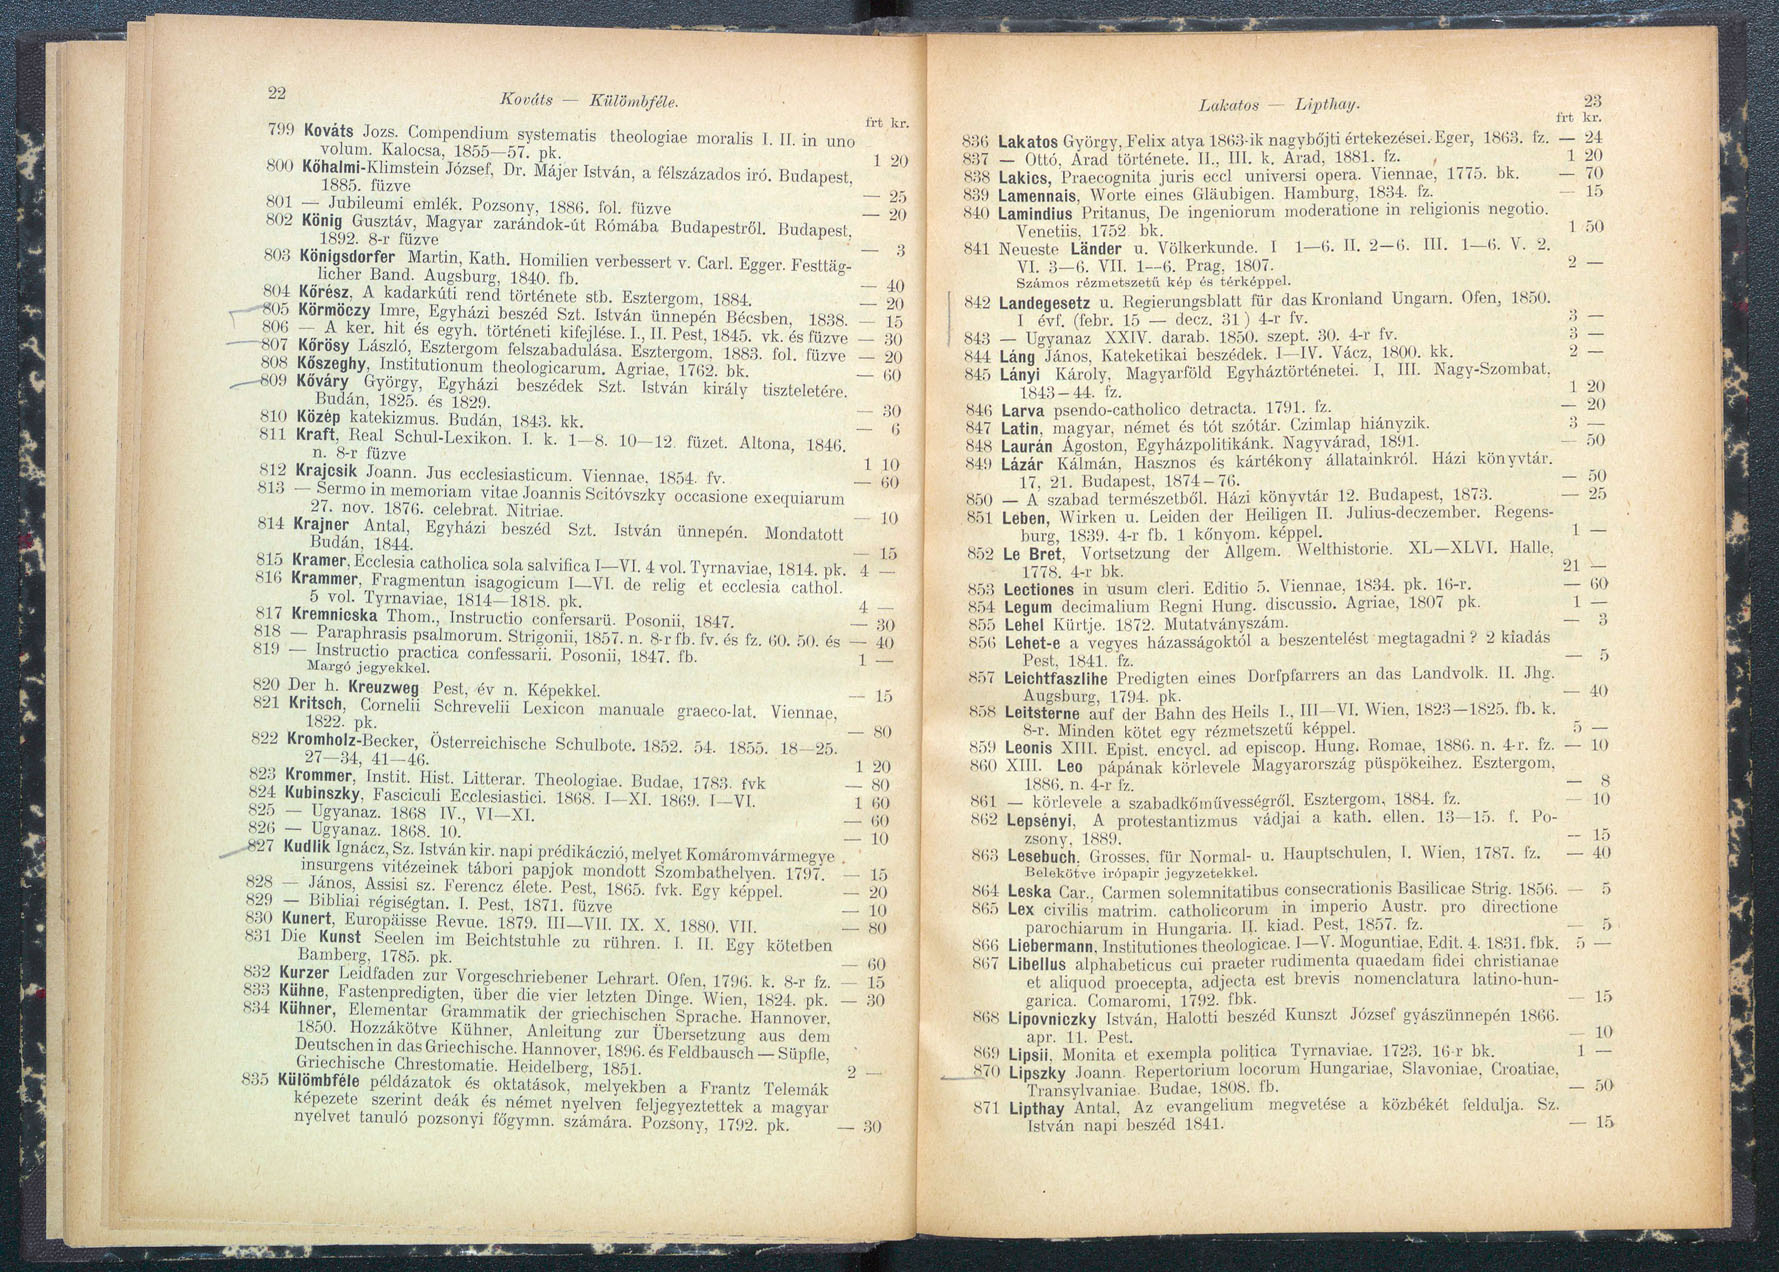 22
Kováts — Külömbféle.
frt kr.
799 Kováts Jozs. Compendium systematis theologiae moralis I. II. in uno
volum. Kalocsa, 1855—57. pk. 1 20
800 Kőhalmi-Klimstein József, Dr. Májer István, a félszázados iró. Budapest,
1885. füzve — 25
801 — Jubileumi emlék. Pozsony, 1886. fol. füzve — 20
802 König Gusztáv, Magyar zarándok-út Rómába Budapestről. Budapest,
1892. 8-r füzve — 3
803 Königsdorfer Martin, Kath. Homilien verbessert v. Carl. Egger. Festtäg-
licher Band. Augsburg, 1840. fb. — 40
804 Kőrész, A kadarkúti rend története stb. Esztergom, 1884. — 20
805 Körmöczy Imre, Egyházi beszéd Szt. István ünnepén Bécsben, 1838. — 15
806 — A ker. hit és egyh. történeti kifejlése. I., II. Pest, 1845. vk. és füzve — 30
807 Kőrösy László, Esztergom felszabadulása. Esztergom, 1883. fol. füzve — 20
808 Kőszeghy, Institutionum theologicarum. Agriae, 1762. bk. — 60
809 Kőváry György, Egyházi beszédek Szt. István király tiszteletére.
Budán, 1825. és 1829. — 30
810 Közép katekizmus. Budán, 1843. kk. — 6
811 Kraft, Real Schul-Lexikon. I. k. 1—8. 10—12. füzet. Altona, 1846.
n. 8-r füzve 1 10
812 Krajcsik Joann. Jus ecclesiasticum. Viennae, 1854. fv. — 60
813 — Sermo in memoriam vitae Joannis Scitóvszky occasione exequiarum
27. nov. 1876. celebrat. Nitriae. — 10
814 Krajner Antal, Egyházi beszéd Szt. István ünnepén. Mondatott
Budán, 1844. — 15
815 Kramer, Ecclesia catholica sola salvifica I—VI. 4 vol. Tyrnaviae, 1814. pk. 4 —
816 Krammer, Fragmentun isagogicum I—VI. de relig et ecclesia cathol.
5 vol. Tyrnaviae, 1814—1818. pk. 4 —
817 Kremnicska Thom., Instructio confersarii. Posonii, 1847. — 30
818 — Paraphrasis psalmorum. Strigonii, 1857. n. 8-r fb. fv. és fz. 60. 50. és — 40
819 — Instructio practica confessarii. Posonii, 1847. fb. 1 —
Margó jegyekkel.
820 Der h. Kreuzweg Pest, év n. Képekkel. — 15
821 Kritsch, Cornelii Schrevelii Lexicon manuale graeco-lat. Viennae,
1822. pk. — 80
822 Kromholz-Becker, Österreichische Schulbote. 1852. 54. 1855. 18—25.
27—34, 41—46. 1 20
823 Krommer, Instit. Hist. Litterar. Theologiae. Budae, 1783. fvk — 80
824 Kubinszky, Fasciculi Ecclesiastici. 1868. I—XI. 1869. I—VI. 1 60
825 — Ugyanaz. 1868 IV., VI—XI. — 60
826 — Ugyanaz. 1868. 10. — 10
827 Kudlik Ignácz, Sz. István kir. napi prédikáczió, melyet Komáromvármegye
insurgens vitézeinek tábori papjok mondott Szombathelyen. 1797. — 15
828 — János, Assisi sz. Ferencz élete. Pest, 1865. fvk. Egy képpel. — 20
829 — Bibliai régiségtan. I. Pest, 1871. füzve — 10
830 Kunert, Europäisse Revue. 1879. III—VII. IX. X. 1880. VII. — 80
831 Die Kunst Seelen im Beichtstuhle zu rühren. I. II. Egy kötetben
Bamberg, 1785. pk. — 60
832 Kurzer Leidfaden zur Vorgeschriebener Lehrart. Ofen, 1796. k. 8-r fz. — 15
833 Kühne, Fastenpredigten, über die vier letzten Dinge. Wien, 1824. pk. — 30
834 Kühner, Elementar Grammatik der griechischen Sprache. Hannover,
1850. Hozzákötve Kühner, Anleitung zur Übersetzung aus dem
Deutschen in das Griechische. Hannover, 1896. és Feldbausch — Süpfle,
Griechische Chrestomatie. Heidelberg, 1851. 2 —
835 Külömbféle példázatok és oktatások, melyekben a Frantz Telemák
képezete szerint deák és német nyelven feljegyeztettek a magyar
nyelvet tanuló pozsonyi főgymn. számára. Pozsony, 1792. pk. — 30
Lakatos — Lipthay.
23
frt kr.
836 Lakatos György, Felix atya 1863-ik nagybőjti értekezései. Eger, 1863. fz. — 24
837 — Ottó, Arad története. II., III. k. Arad, 1881. fz. 1 20
838 Lakics, Praecognita juris eccl universi opera. Viennae, 1775. bk. — 70
839 Lamennais, Worte eines Gläubigen. Hamburg, 1834. fz. — 15
840 Lamindius Pritanus, De ingeniorum moderatione in religionis negotio.
Venetiis, 1752. bk. 1 50
841 Neueste Länder u. Völkerkunde. I 1—6. II. 2—6. III. 1—6. V. 2.
VI. 3—6. VII. 1—6. Prag, 1807. 2 —
Számos rézmetszetű kép és térképpel.
842 Landegesetz u. Regierungsblatt für das Kronland Ungarn. Ofen, 1850.
I évf. (febr. 15 — decz. 31) 4-r fv. 3 —
843 — Ugyanaz XXIV. darab. 1850. szept. 30. 4-r fv. 3 —
844 Láng János, Kateketikai beszédek. I—IV. Vácz, 1800. kk. 2 —
845 Lányi Károly, Magyarföld Egyháztörténetei. I, III. Nagy-Szombat,
1843–44. fz. 1 20
846 Larva psendo-catholico detracta. 1791. fz. — 20
847 Latin, magyar, német és tót szótár. Czimlap hiányzik. 3 —
848 Laurán Ágoston, Egyházpolitikánk. Nagyvárad, 1891. — 50
849 Lázár Kálmán, Hasznos és kártékony állatainkról. Házi könyvtár.
17, 21. Budapest, 1874–76. — 50
850 — A szabad természetből. Házi könyvtár 12. Budapest, 1873. — 25
851 Leben, Wirken u. Leiden der Heiligen II. Julius-deczember. Regens-
burg, 1839. 4-r fb. 1 kőnyom. képpel. 1 —
852 Le Bret, Vortsetzung der Allgem. Welthistorie. XL—XLVI. Halle,
1778. 4-r bk. 21 —
853 Lectiones in usum cleri. Editio 5. Viennae, 1834. pk. 16-r. — 60
854 Legum decimalium Regni Hung. discussio. Agriae, 1807 pk. 1 —
855 Lehel Kürtje. 1872. Mutatványszám. — 3
856 Lehet-e a vegyes házasságoktól a beszentelést megtagadni? 2 kiadás
Pest, 1841. fz. — 5
857 Leichtfaszlihe Predigten eines Dorfpfarrers an das Landvolk. II. Jhg.
Augsburg, 1794. pk. — 40
858 Leitsterne auf der Bahn des Heils I., III—VI. Wien, 1823—1825. fb. k.
8-r. Minden kötet egy rézmetszetű képpel. 5 —
859 Leonis XIII. Epist. encycl. ad episcop. Hung. Romae, 1886. n. 4-r. fz. — 10
860 XIII. Leo pápának körlevele Magyarország püspökeihez. Esztergom,
1886. n. 4-r fz. — 8
861 — körlevele a szabadkőművességről. Esztergom, 1884. fz. — 10
862 Lepsényi, A protestantizmus vádjai a kath. ellen. 13—15. f. Po-
zsony, 1889. — 15
863 Lesebuch, Grosses, für Normal- u. Hauptschulen, I. Wien, 1787. fz. — 40
Belekötve irópapir jegyzetekkel.
864 Leska Car., Carmen solemnitatibus consecrationis Basilicae Strig. 1856. — 5
865 Lex civilis matrim. catholicorum in imperio Austr. pro directione
parochiarum in Hungaria. II. kiad. Pest, 1857. fz. — 5
866 Liebermann, Institutiones theologicae. I—V. Moguntiae, Edit. 4. 1831. fbk. 5 —
867 Libellus alphabeticus cui praeter rudimenta quaedam fidei christianae
et aliquod proecepta, adjecta est brevis nomenclatura latino-hun-
garica. Comaromi, 1792. fbk. — 15
868 Lipovniczky István, Halotti beszéd Kunszt József gyászünnepén 1866.
apr. 11. Pest. — 10
869 Lipsii, Monita et exempla politica Tyrnaviae. 1723. 16-r bk. 1 —
870 Lipszky Joann. Repertorium locorum Hungariae, Slavoniae, Croatiae,
Transylvaniae. Budae, 1808. fb. — 50
871 Lipthay Antal, Az evangelium megvetése a közbékét feldulja. Sz.
István napi beszéd 1841. — 15